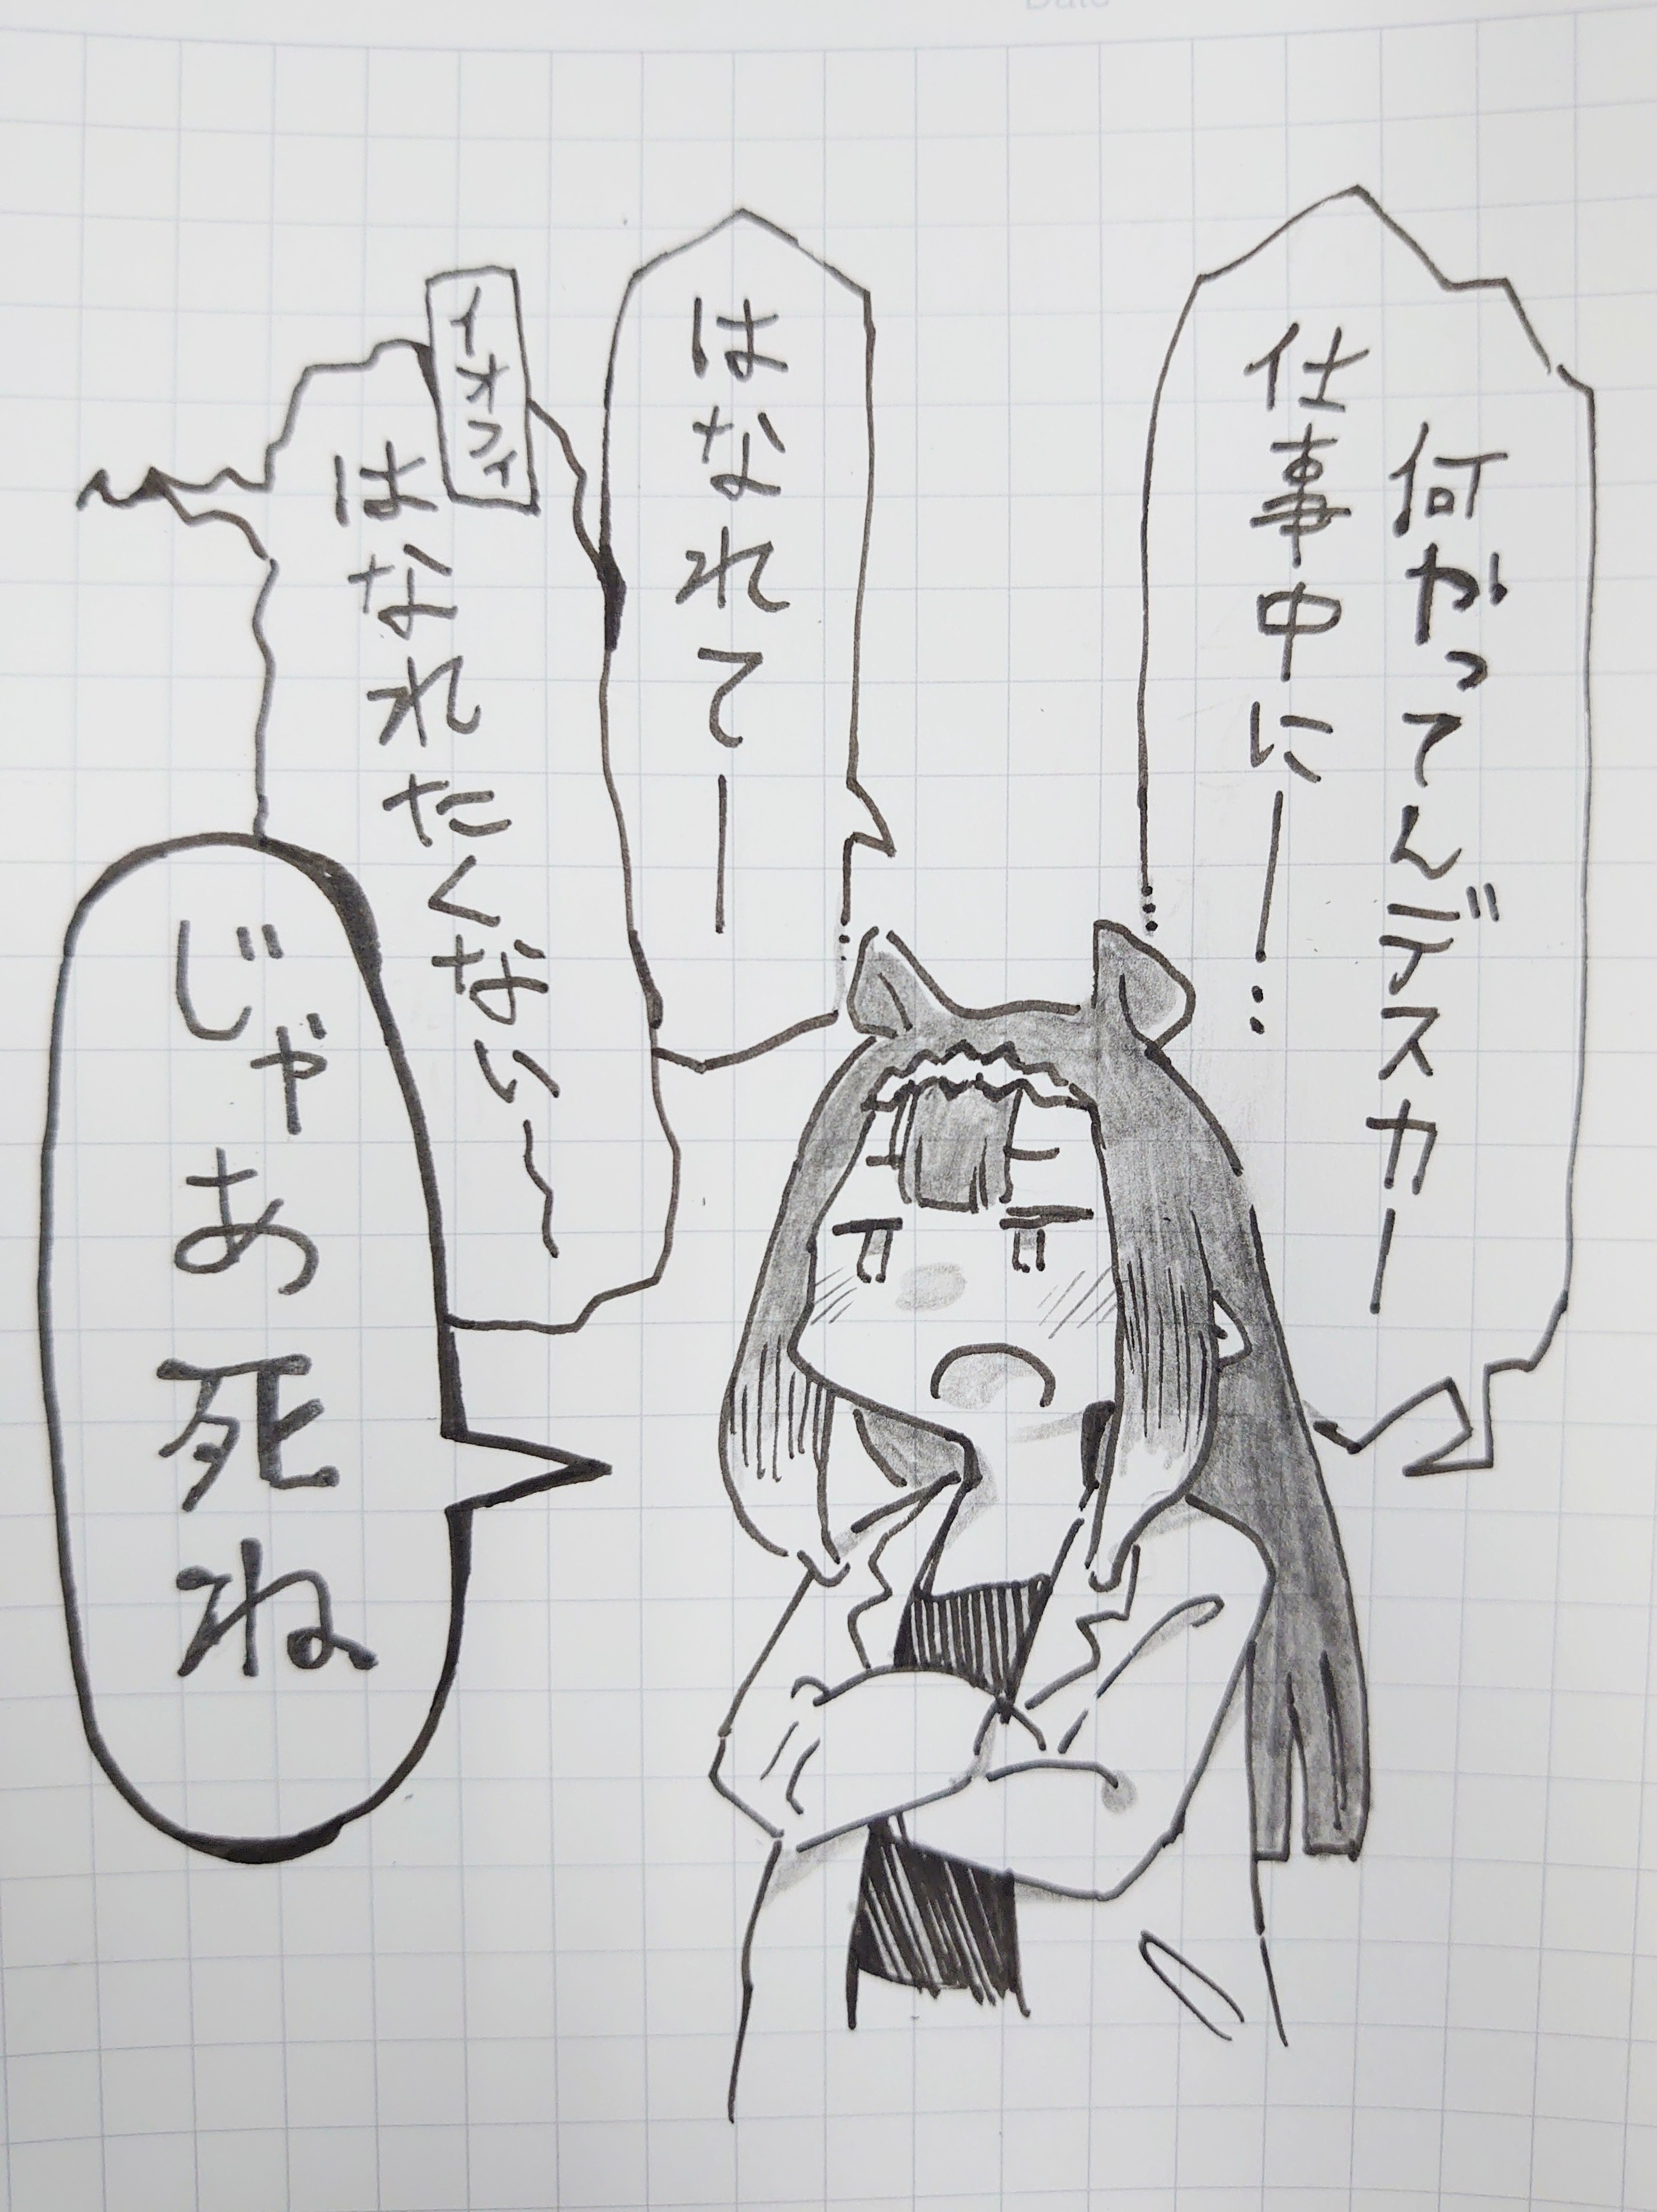 何やってんデスカー
仕事中にー…
はなれてー
イオフィ
はなれたくない〜
じゃあ死ね
Date